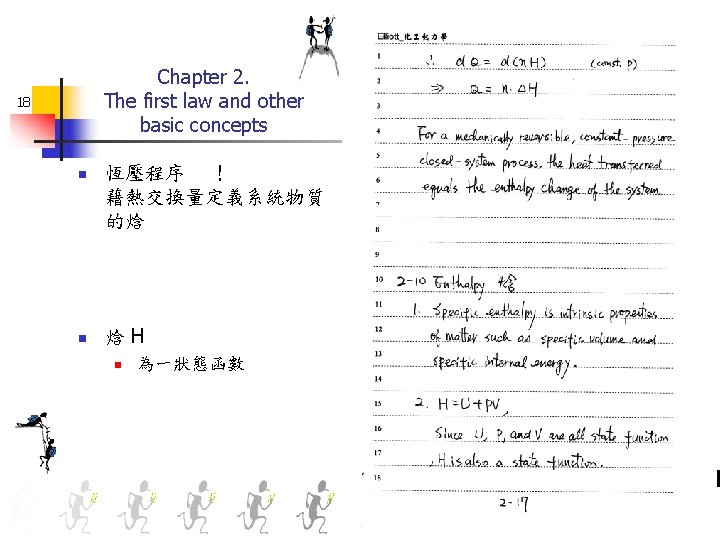 Chapter 2.
18
The first law and other
basic concepts
恆壓程序 ！
藉熱交換量定義系統物質
的焓
焓 H
為一狀態函數
Elliott_化工熱力學
1 ∴ dQ = d(nH) (const. P)
2 ⇒ Q = n·ΔH
3
4 For a mechanically reversible, constant-pressure
5 closed-system process, the heat transferred
6 equals the enthalpy change of the system
7
8
9
10 2-10 Enthalpy 焓
11 1. Specific enthalpy is intrinsic properties
12 of matter such as specific volume and
13 specific internal energy.
14
15 2. H = U + PV,
16 Since U, P, and V are all state function
17 , H is also a state function.
18
2-17